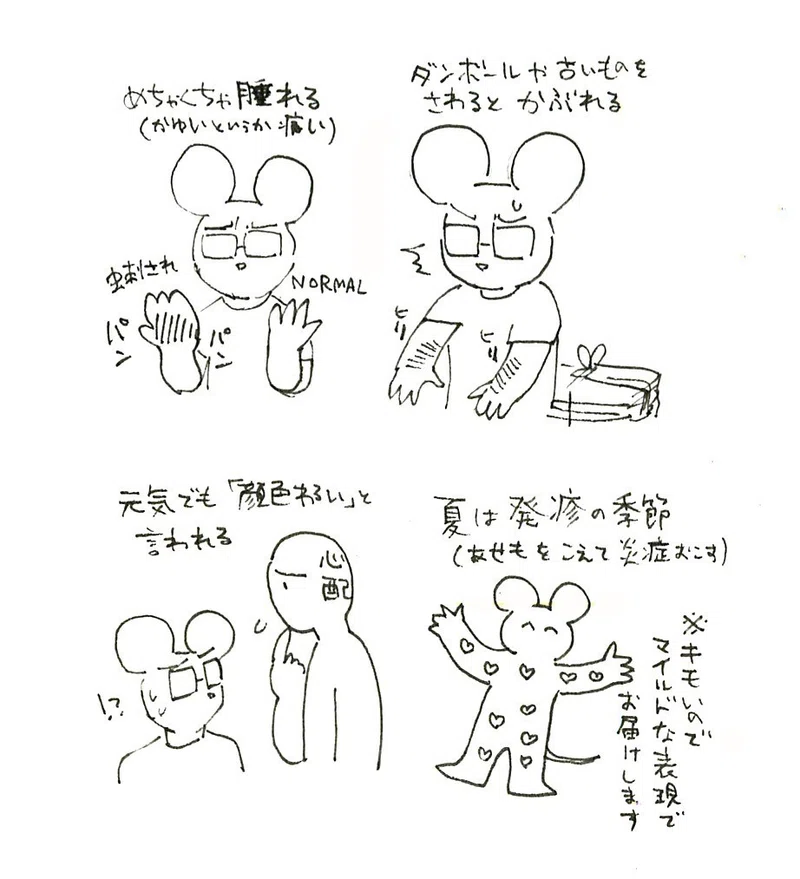 めちゃくちゃ腫れる
(かゆいというか痛い)
虫刺され
NORMAL
パン
パン
ダンボールや古いものを
さわると かぶれる
ヒリ
ヒリ
元気でも「顔色わるい」と
言われる
心配
!?
夏は発疹の季節
(あせもをこえて炎症おこす)
※キモいので
マイルドな表現で
お届けします